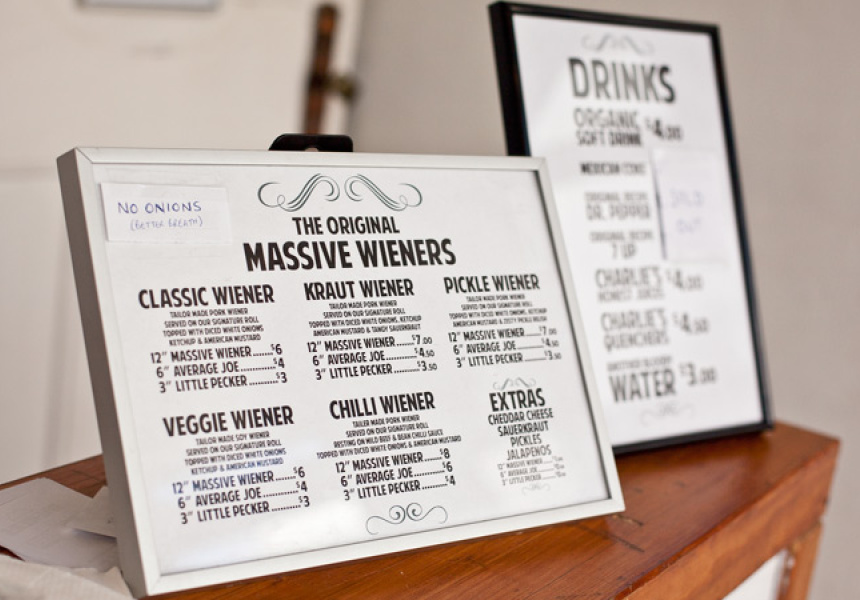 NO ONIONS
(BETTER BREATH)
THE ORIGINAL
MASSIVE WIENERS
CLASSIC WIENER
TAILOR MADE PORK WIENER
SERVED ON OUR SIGNATURE ROLL
TOPPED WITH DICED WHITE ONIONS
KETCHUP & AMERICAN MUSTARD
12" MASSIVE WIENER.......$6
6" AVERAGE JOE..............$4
3" LITTLE PECKER............$3
KRAUT WIENER
TAILOR MADE PORK WIENER
SERVED ON OUR SIGNATURE ROLL
TOPPED WITH DICED WHITE ONIONS, KETCHUP
AMERICAN MUSTARD & TANGY SAUERKRAUT
12" MASSIVE WIENER.....$7.00
6" AVERAGE JOE............$4.50
3" LITTLE PECKER..........$3.50
PICKLE WIENER
TAILOR MADE PORK WIENER
SERVED ON OUR SIGNATURE ROLL
TOPPED WITH DICED WHITE ONIONS, KETCHUP
AMERICAN MUSTARD & ZESTY PICKLE RELISH
12" MASSIVE WIENER.....$7.00
6" AVERAGE JOE............$4.50
3" LITTLE PECKER..........$3.50
VEGGIE WIENER
TAILOR MADE SOY WIENER
SERVED ON OUR SIGNATURE ROLL
TOPPED WITH DICED WHITE ONIONS
KETCHUP & AMERICAN MUSTARD
12" MASSIVE WIENER.......$6
6" AVERAGE JOE..............$4
3" LITTLE PECKER............$3
CHILLI WIENER
TAILER MADE PORK WIENER
SERVED ON OUR SIGNATURE ROLL
RESTING ON MILD BEEF & BEAN CHILLI SAUCE
TOPPED WITH DICED WHITE ONIONS & AMERICAN MUSTARD
12" MASSIVE WIENER.......$8
6" AVERAGE JOE..............$6
3" LITTLE PECKER............$4
EXTRAS
CHEDDAR CHEESE
SAUERKRAUT
PICKLES
JALAPENOS
12" MASSIVE WIENER
6" AVERAGE JOE
3" LITTLE PECKER
DRINKS
ORGANIC
SOFT DRINK $4.00
MEXICAN COKE
ORIGINAL RECIPE
DR. PEPPER
ORIGINAL RECIPE
7 UP
SOLD
OUT
CHARLIE'S $4.00
HONEST JUICES
CHARLIE'S $4.50
QUENCHERS
WATER $3.00